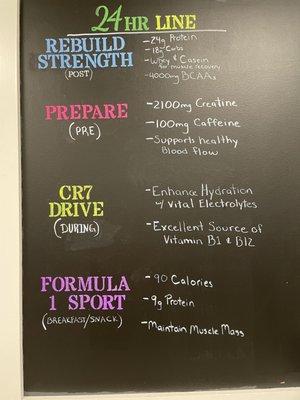 24HR LINE
REBUILD
STRENGTH
(POST)
-24g Protein
-18g Carbs
-Whey & Casein
for muscle recovery
-4000mg BCAAs
PREPARE
(PRE)
-2100mg Creatine
-100mg Caffeine
-Supports healthy
Blood flow
CR7
DRIVE
(DURING)
-Enhance Hydration
w/ Vital Electrolytes
-Excellent Source of
Vitamin B1 & B12
FORMULA
1 SPORT
(BREAKFAST/SNACK)
-90 Calories
-9g Protein
-Maintain Muscle Mass